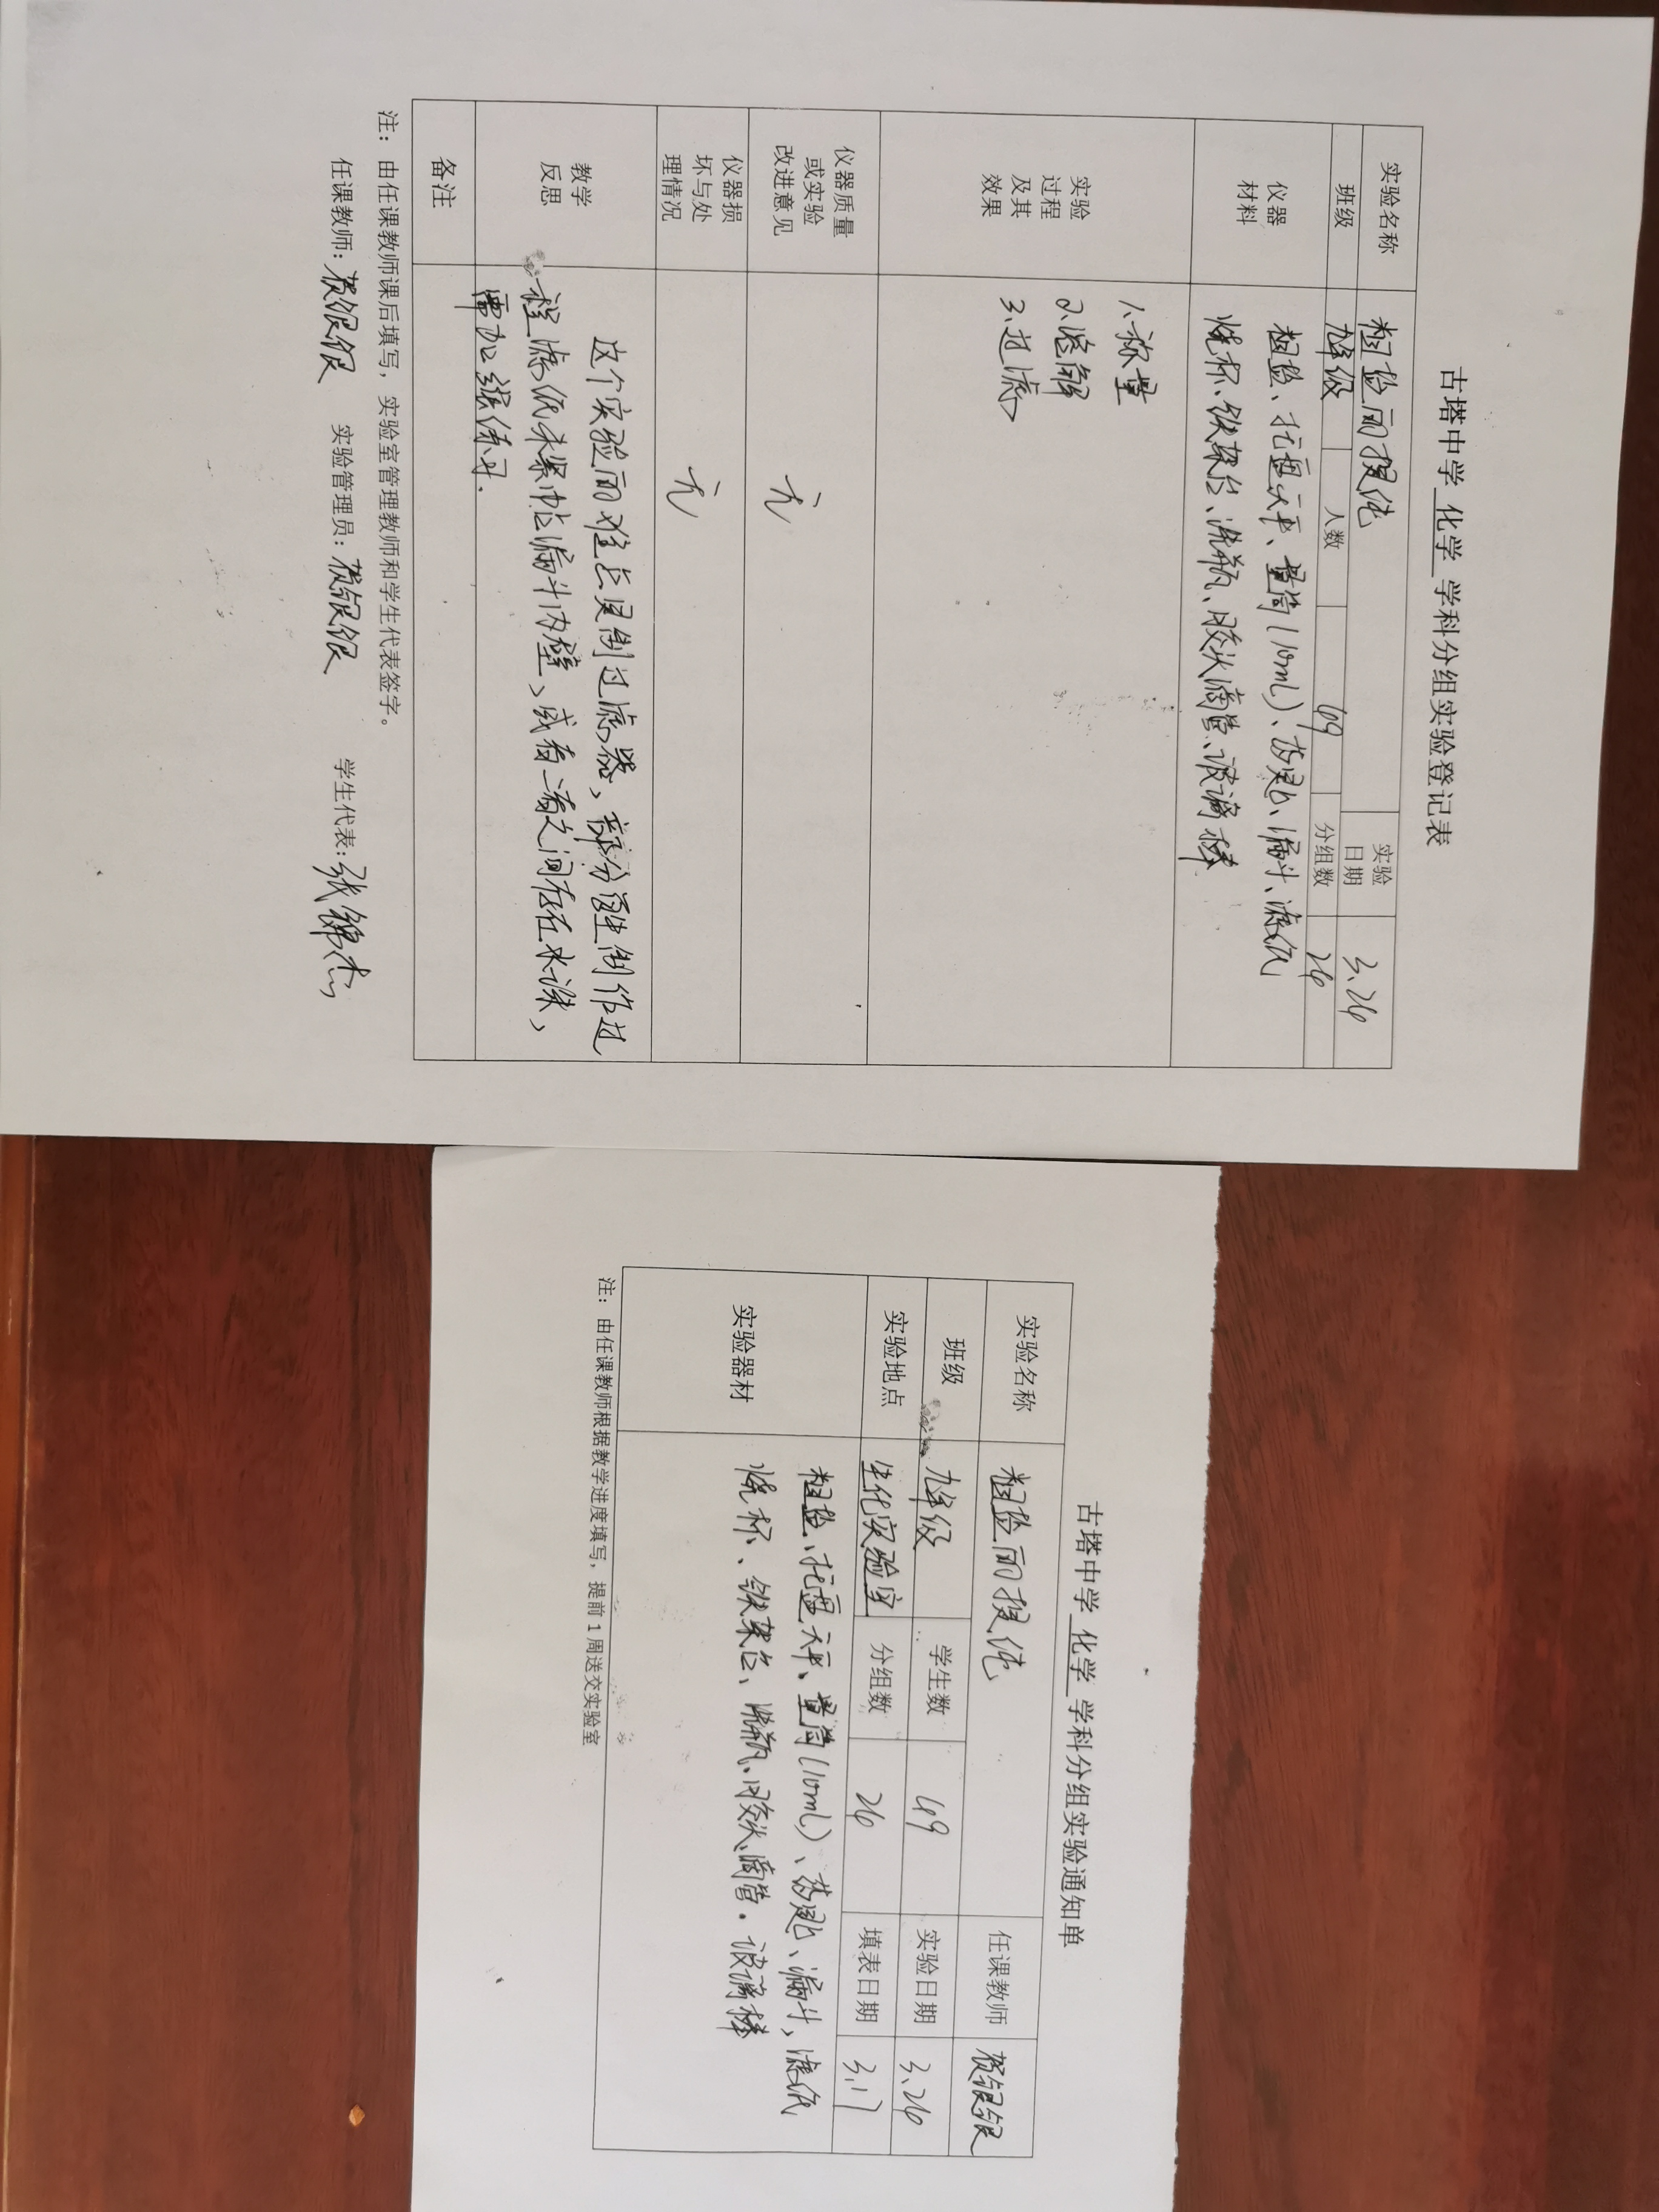 古塔中学 化学 学科分组实验登记表
实验名称 粗盐的提纯 实验日期 3.26
班级 九年级 人数 49 分组数 26
仪器材料 粗盐、托盘天平、量筒(10mL)、药匙、漏斗、滤纸
烧杯、铁架台、洗瓶、胶头滴管、玻璃棒
实验过程及其效果 1、称量
2、溶解
3、过滤
仪器质量或实验改进意见 无
仪器损坏与处理情况 无
教学反思 这个实验的难点是制过滤器,部分学生制作过
程滤纸未紧帖漏斗内壁、或者二者之间存在水误,
需加强练习.
备注
注: 由任课教师课后填写,实验室管理教师和学生代表签字。
任课教师: 贺银银 实验管理员: 贺银银 学生代表: 张锦杰
古塔中学 化学 学科分组实验通知单
实验名称 粗盐的提纯 任课教师 贺银银
班级 九年级 学生数 49 实验日期 3.26
实验地点 生化实验室 分组数 26 填表日期 3.17
实验器材 粗盐、托盘天平、量筒(10mL)、药匙、漏斗,滤纸
烧杯、铁架台、洗瓶、胶头滴管.玻璃棒
注: 由任课教师根据教学进度填写,提前1周送交实验室